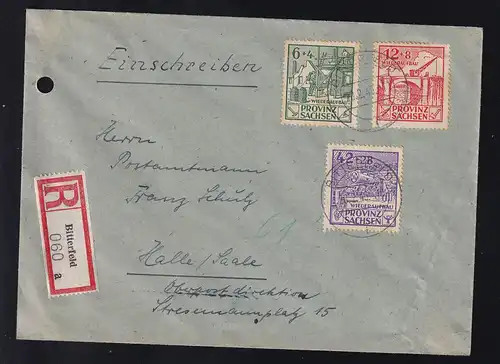 Einschreiben
6+4
WIEDERAUFBAU
PROVINZ
SACHSEN
12+8
WIEDERAUFBAU
PROVINZ
SACHSEN
42+28
WIEDERAUFBAU
PROVINZ
SACHSEN
Herrn
Postamtmann
Franz Schulz
Halle/Saale
Oberpostdirektion
Stresemannplatz 15
R
Bitterfeld
060 a